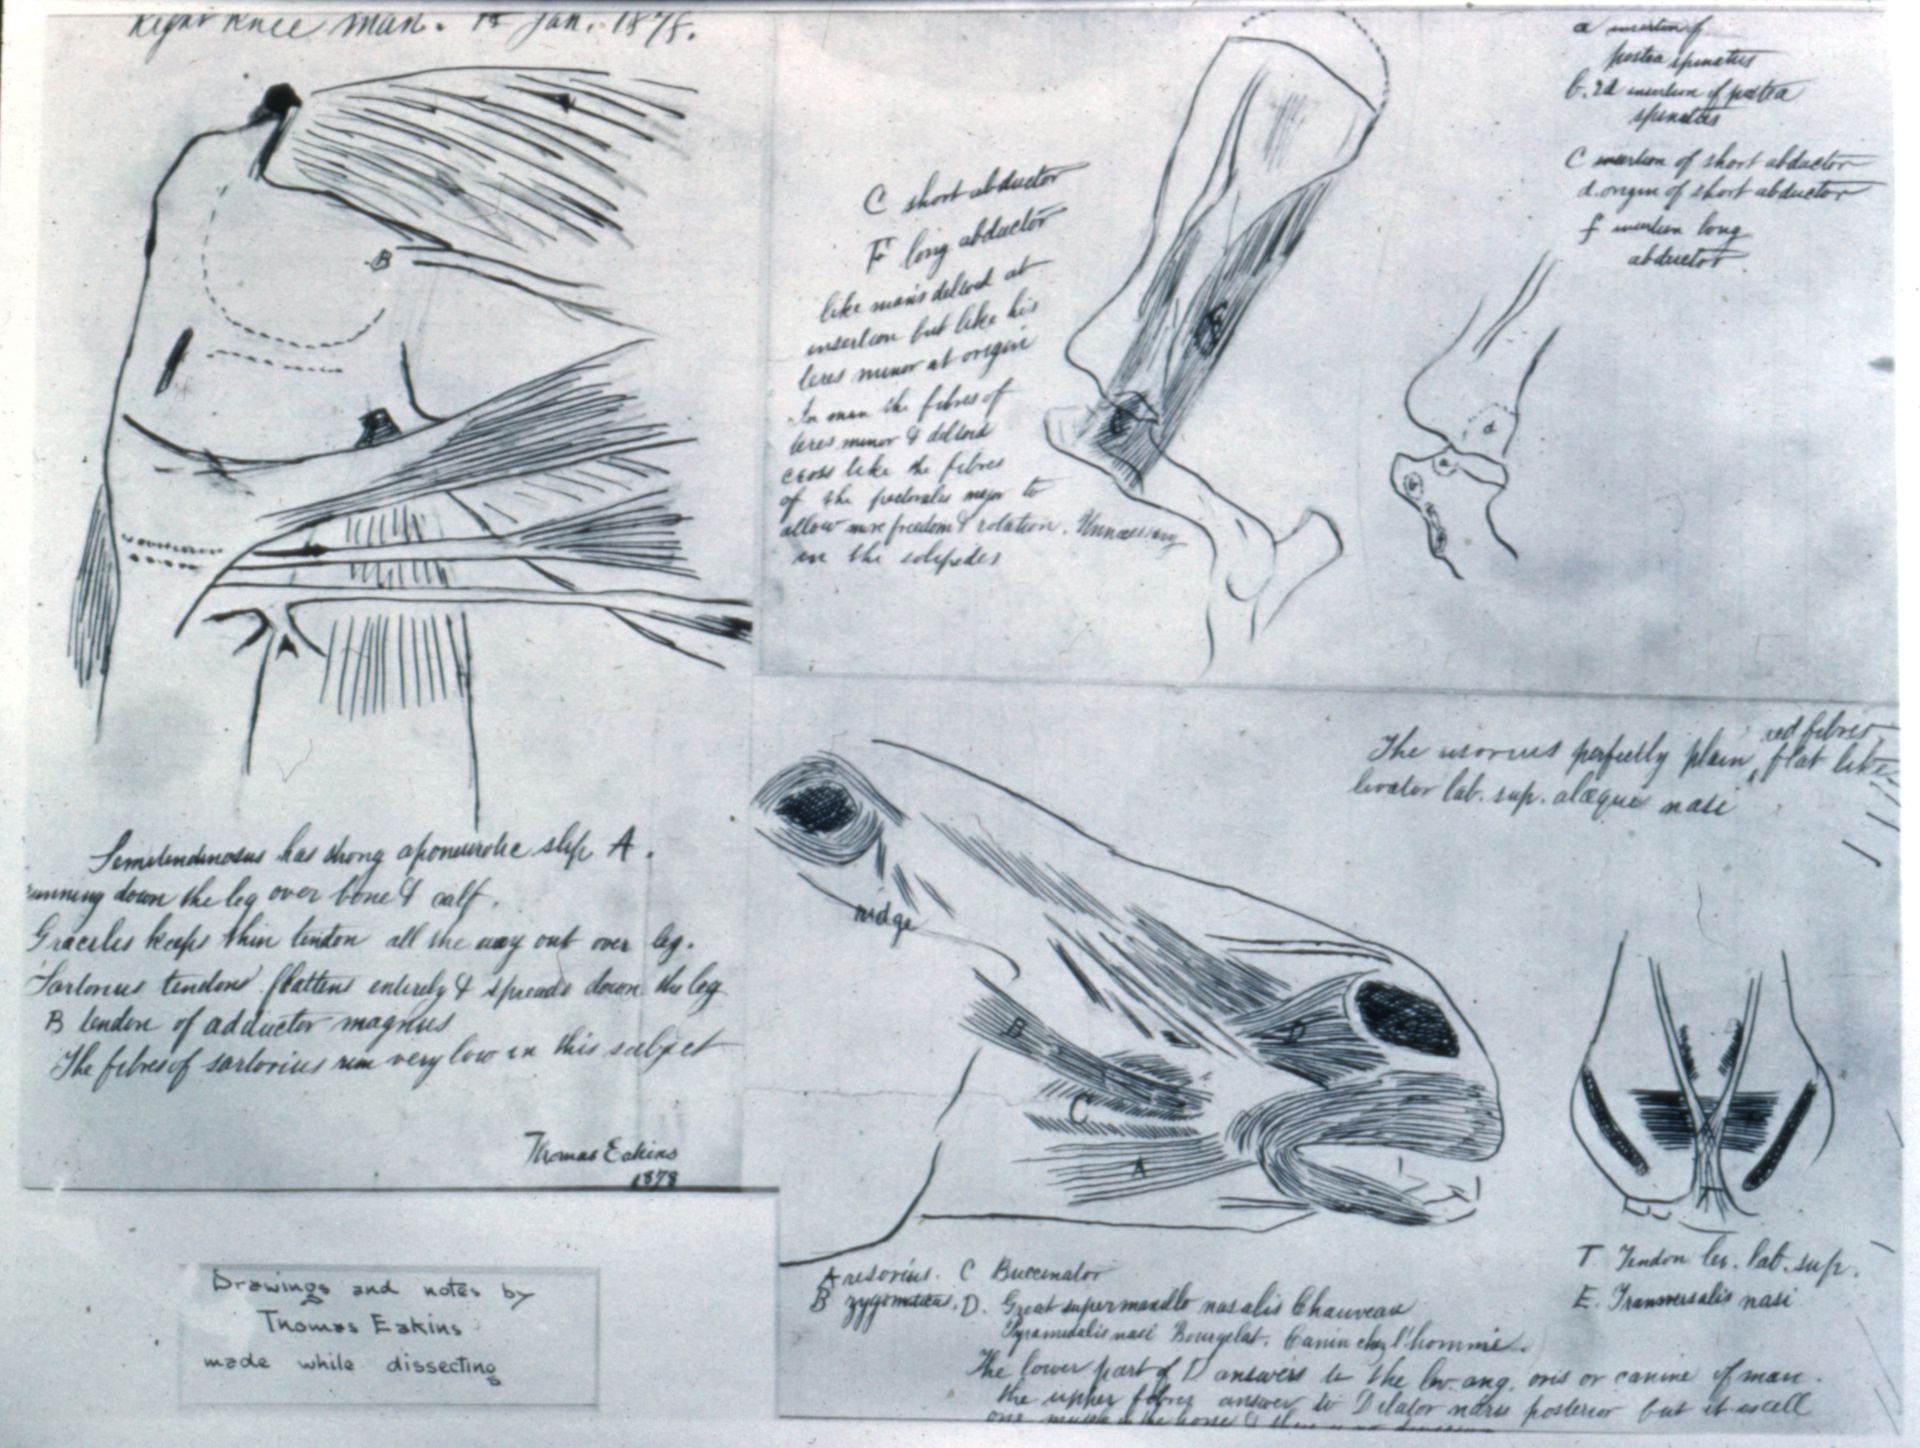 Right Knee man. 18 Jan. 1878.
B
Semitendinosus has strong aponeurotic slip A.
running down the leg over bone & calf.
Gracilis keeps thin tendon all the way out over leg.
Sartorius tendons flattens entirely & spreads down the leg
B tendon of adductor magnus
The fibres of sartorius run very low in this subject
Thomas Eakins
1878
Drawings and notes by
Thomas Eakins
made while dissecting
C short abductor
F long abductor
like man's deltoid at
insertion but like his
teres minor at origin
In man the fibres of
teres minor & deltoid
cross like the fibres
of the pectoralis major to
allow more freedom & rotation. Unnecessary
in the solipedes
a insertion of
postea spinatus
b. 2d insertion of postea
spinatus
C insertion of short abductor
d. origin of short abductor
f insertion long
abductor
d
a
b
The risorius perfectly plain red fibres flat like
levator lab. sup. alaeque nasi
ridge
B
C
A
D
A risorius. C Buccinator
B zygomaticus. D. Great supermaxillo nasalis Chauveau
Pyramidalis nasi Bourgelat. Canin chez l'homme.
The lower part of D answers to the lev. ang. oris or canine of man.
the upper fibres answer to Dilator naris posterior but it is all
one muscle in the horse &
T. Tendon lev. lab. sup.
E. Transversalis nasi